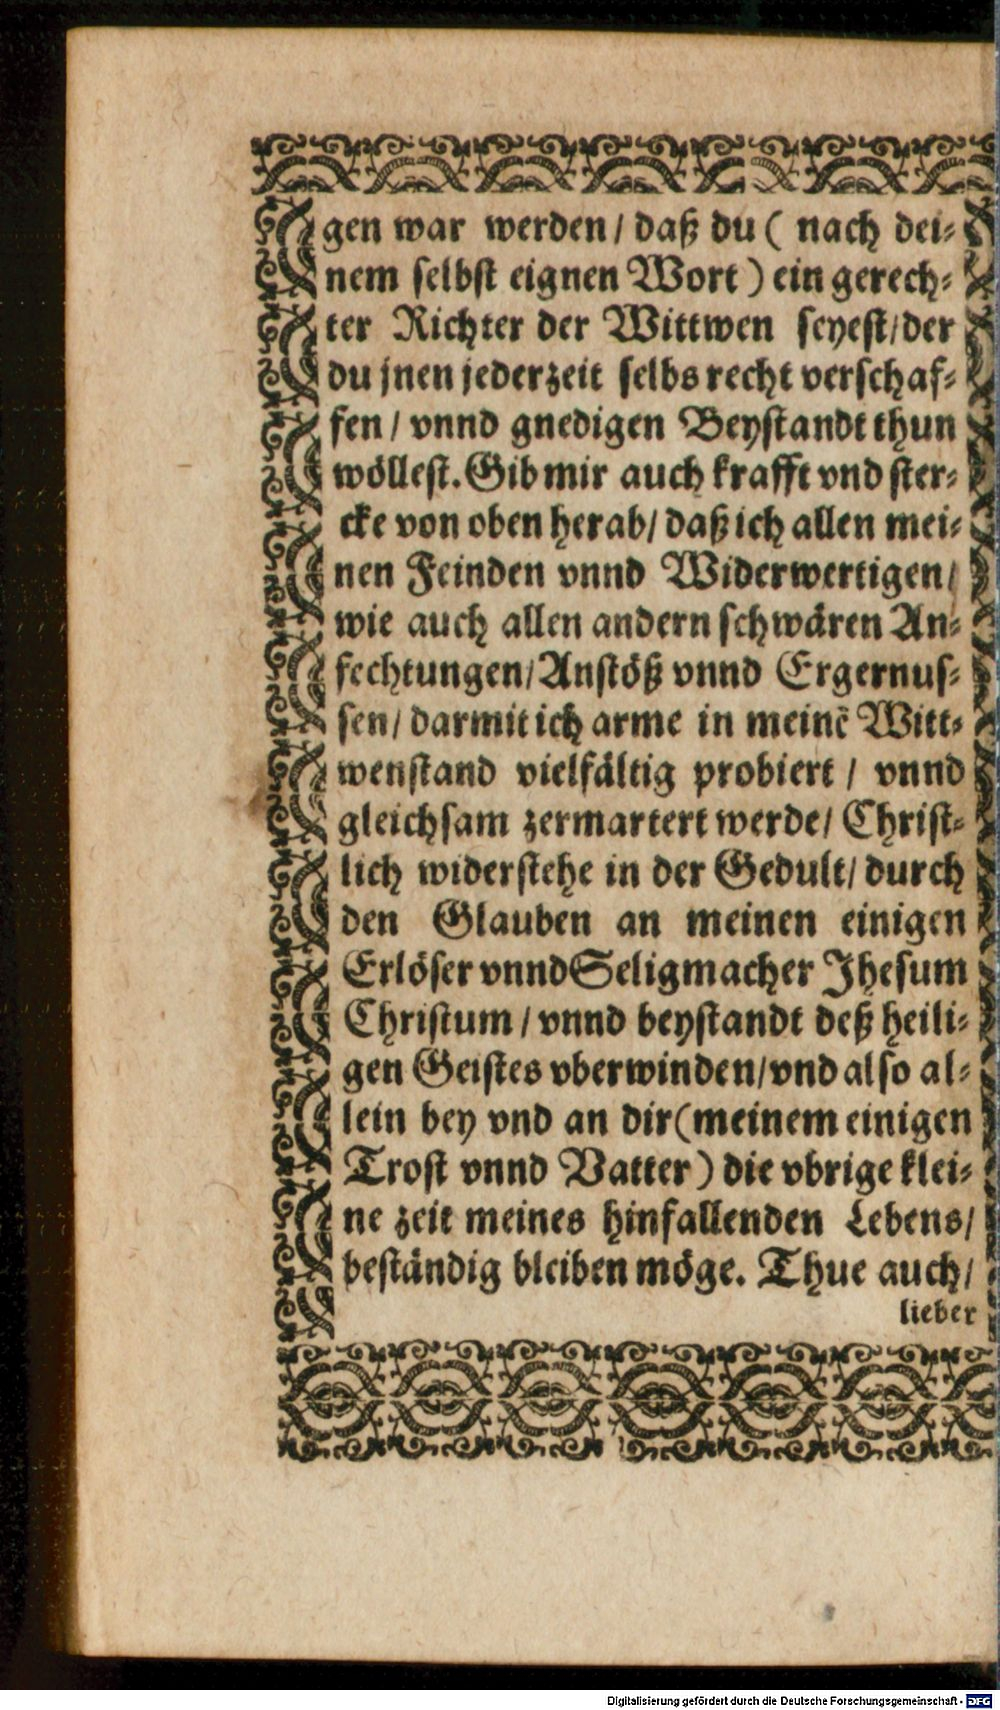 gen war werden / daß du ( nach dei⸗
nem selbst eignen Wort ) ein gerech⸗
ter Richter der Wittwen seyest / der
du jnen jederzeit selbs recht verschaf⸗
fen / vnnd gnedigen Beystandt thun
wöllest. Gib mir auch krafft vnd ster⸗
cke von oben herab / daß ich allen mei⸗
nen Feinden vnnd Widerwertigen /
wie auch allen andern schwären An⸗
fechtungen / Anstöß vnnd Ergernus⸗
sen / darmit ich arme in meinẽ Witt⸗
wenstand vielfältig probiert / vnnd
gleichsam zermartert werde / Christ⸗
lich widerstehe in der Gedult / durch
den Glauben an meinen einigen
Erlöser vnnd Seligmacher Jhesum
Christum / vnnd beystandt deß heili⸗
gen Geistes vberwinden / vnd also al⸗
lein bey vnd an dir ( meinem einigen
Trost vnnd Vatter ) die vbrige klei⸗
ne zeit meines hinfallenden Lebens /
beständig bleiben möge. Thue auch /
lieber
Digitalisierung gefördert durch die Deutsche Forschungsgemeinschaft - DFG